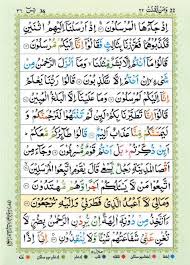 وَمَنْ يَّقْنُتْ ٢٢ 22
يٰسٓ ٣٦ 36
اِذْ جَآءَهَا الْمُرْسَلُوْنَ اِذْ اَرْسَلْنَآ اِلَيْهِمُ اثْنَيْنِ
فَكَذَّبُوْهُمَا فَعَزَّزْنَا بِثَالِثٍ فَقَالُوْٓا اِنَّآ اِلَيْكُمْ مُّرْسَلُوْنَ
قَالُوْا مَآ اَنْتُمْ اِلَّا بَشَرٌ مِّثْلُنَا وَمَآ اَنْزَلَ الرَّحْمٰنُ مِنْ
شَيْءٍ اِنْ اَنْتُمْ اِلَّا تَكْذِبُوْنَ قَالُوْا رَبُّنَا يَعْلَمُ اِنَّآ
اِلَيْكُمْ لَمُرْسَلُوْنَ وَمَا عَلَيْنَآ اِلَّا الْبَلٰغُ الْمُبِيْنُ
قَالُوْٓا اِنَّا تَطَيَّرْنَا بِكُمْ لَئِنْ لَّمْ تَنْتَهُوْا لَنَرْجُمَنَّكُمْ وَ
لَيَمَسَّنَّكُمْ مِّنَّا عَذَابٌ اَلِيْمٌ قَالُوْا طَآئِرُكُمْ مَّعَكُمْ اَئِنْ
ذُكِّرْتُمْ بَلْ اَنْتُمْ قَوْمٌ مُّسْرِفُوْنَ وَجَآءَ مِنْ
اَقْصَا الْمَدِيْنَةِ رَجُلٌ يَّسْعٰى قَالَ يٰقَوْمِ اتَّبِعُوا الْمُرْسَلِيْنَ
اتَّبِعُوْا مَنْ لَّا يَسْئَلُكُمْ اَجْرًا وَّهُمْ مُّهْتَدُوْنَ
وَمَا لِيَ لَآ اَعْبُدُ الَّذِيْ فَطَرَنِيْ وَاِلَيْهِ تُرْجَعُوْنَ
ءَاَتَّخِذُ مِنْ دُوْنِهٖٓ اٰلِهَةً اِنْ يُّرِدْنِ الرَّحْمٰنُ بِضُرٍّ لَّا
تُغْنِ عَنِّيْ شَفَاعَتُهُمْ شَيْئًا وَّلَا يُنْقِذُوْنِ اِنِّيْٓ